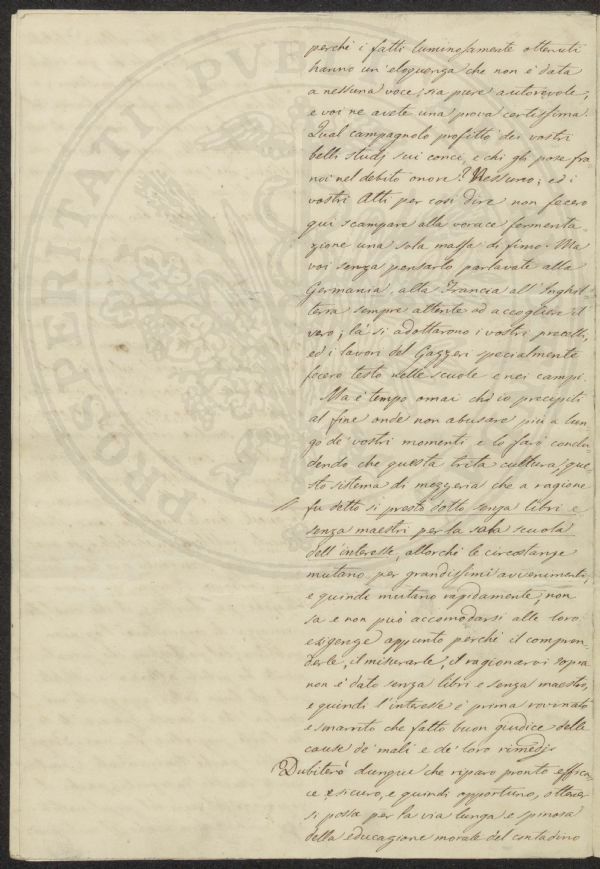 perchè i fatti luminosamente ottenuti
hanno un' eloquenza che non è data
a nessuna voce, sia pure autorevole;
e voi ne avete una prova certissima.
Qual campagnolo profittò dei vostri
belli studj sui conci, e chi gli pose fra
noi nel debito onore? Nessuno; ed i
vostri Atti per così dire non fecero
qui scampare alla vorace fermenta-
zione una sola massa di fimo. Ma
voi senza pensarlo parlavate alla
Germania, alla Francia all' Inghil-
terra sempre attente ad accogliere il
vero; là si adottarono i vostri precetti,
ed i lavori del Gazzeri specialmente
fecero testo nelle scuole e nei campi.
Ma è tempo omai ch' io precipiti
al fine onde non abusare più a lun-
go de' vostri momenti e lo farò conclu-
dendo che questa trita cultura, que-
sto sistema di mezzeria che a ragione
fu detto si presto dotto senza libri e
senza maestri per la sola scuola
dell' interesse, allorchè le circostanze
mutano per grandissimi avvenimenti,
e quindi mutano rapidamente, non
sa e non può accomodarsi alle loro
esigenze appunto perchè il compren-
derle, il misurarle, il ragionarvi sopra
non è dato senza libri e senza maestro,
e quindi l' interesse è prima rovinato
e smarrito che fatto buon giudice delle
cause de' mali e de' loro rimedj.
Dubiterò dunque che riparo pronto effica-
ce e sicuro, e quindi opportuno, ottener
si possa per la via lunga e spinosa
della educazione morale del contadino
PROSPERITATI PVB